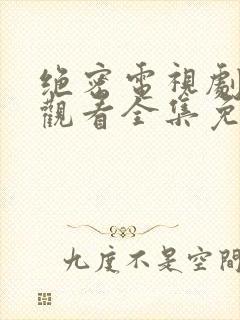 绝密電視劇
觀看全集免
九度不是空間